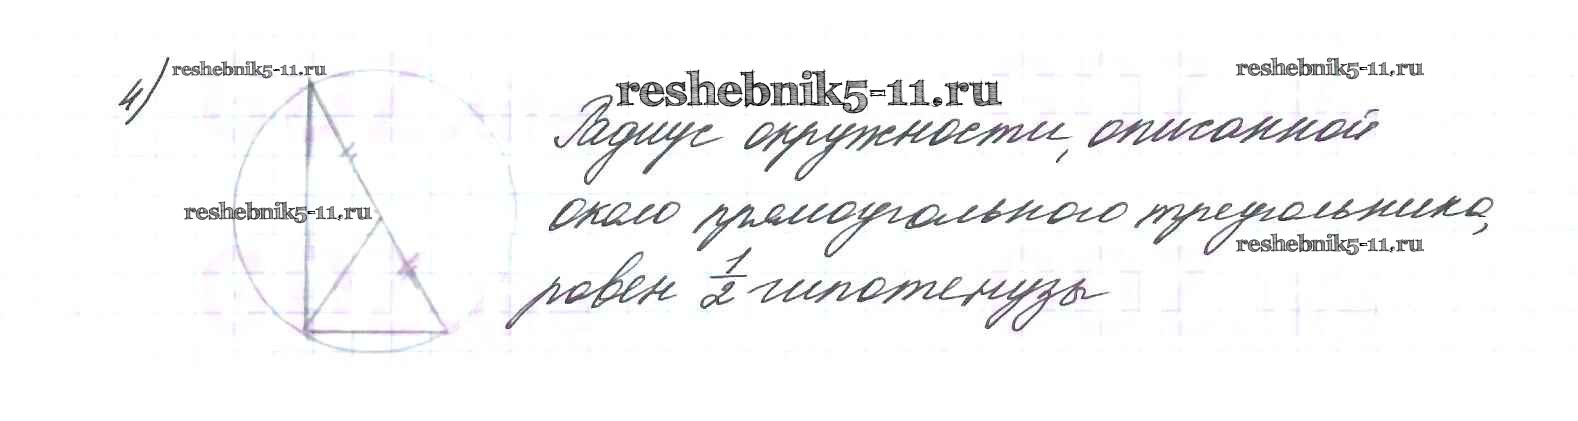 4)
reshebnik5-11.ru
reshebnik5-11.ru
reshebnik5-11.ru
Радиус окружности, описанной
reshebnik5-11.ru
около прямоугольного треугольника,
reshebnik5-11.ru
равен 1/2 гипотенузы